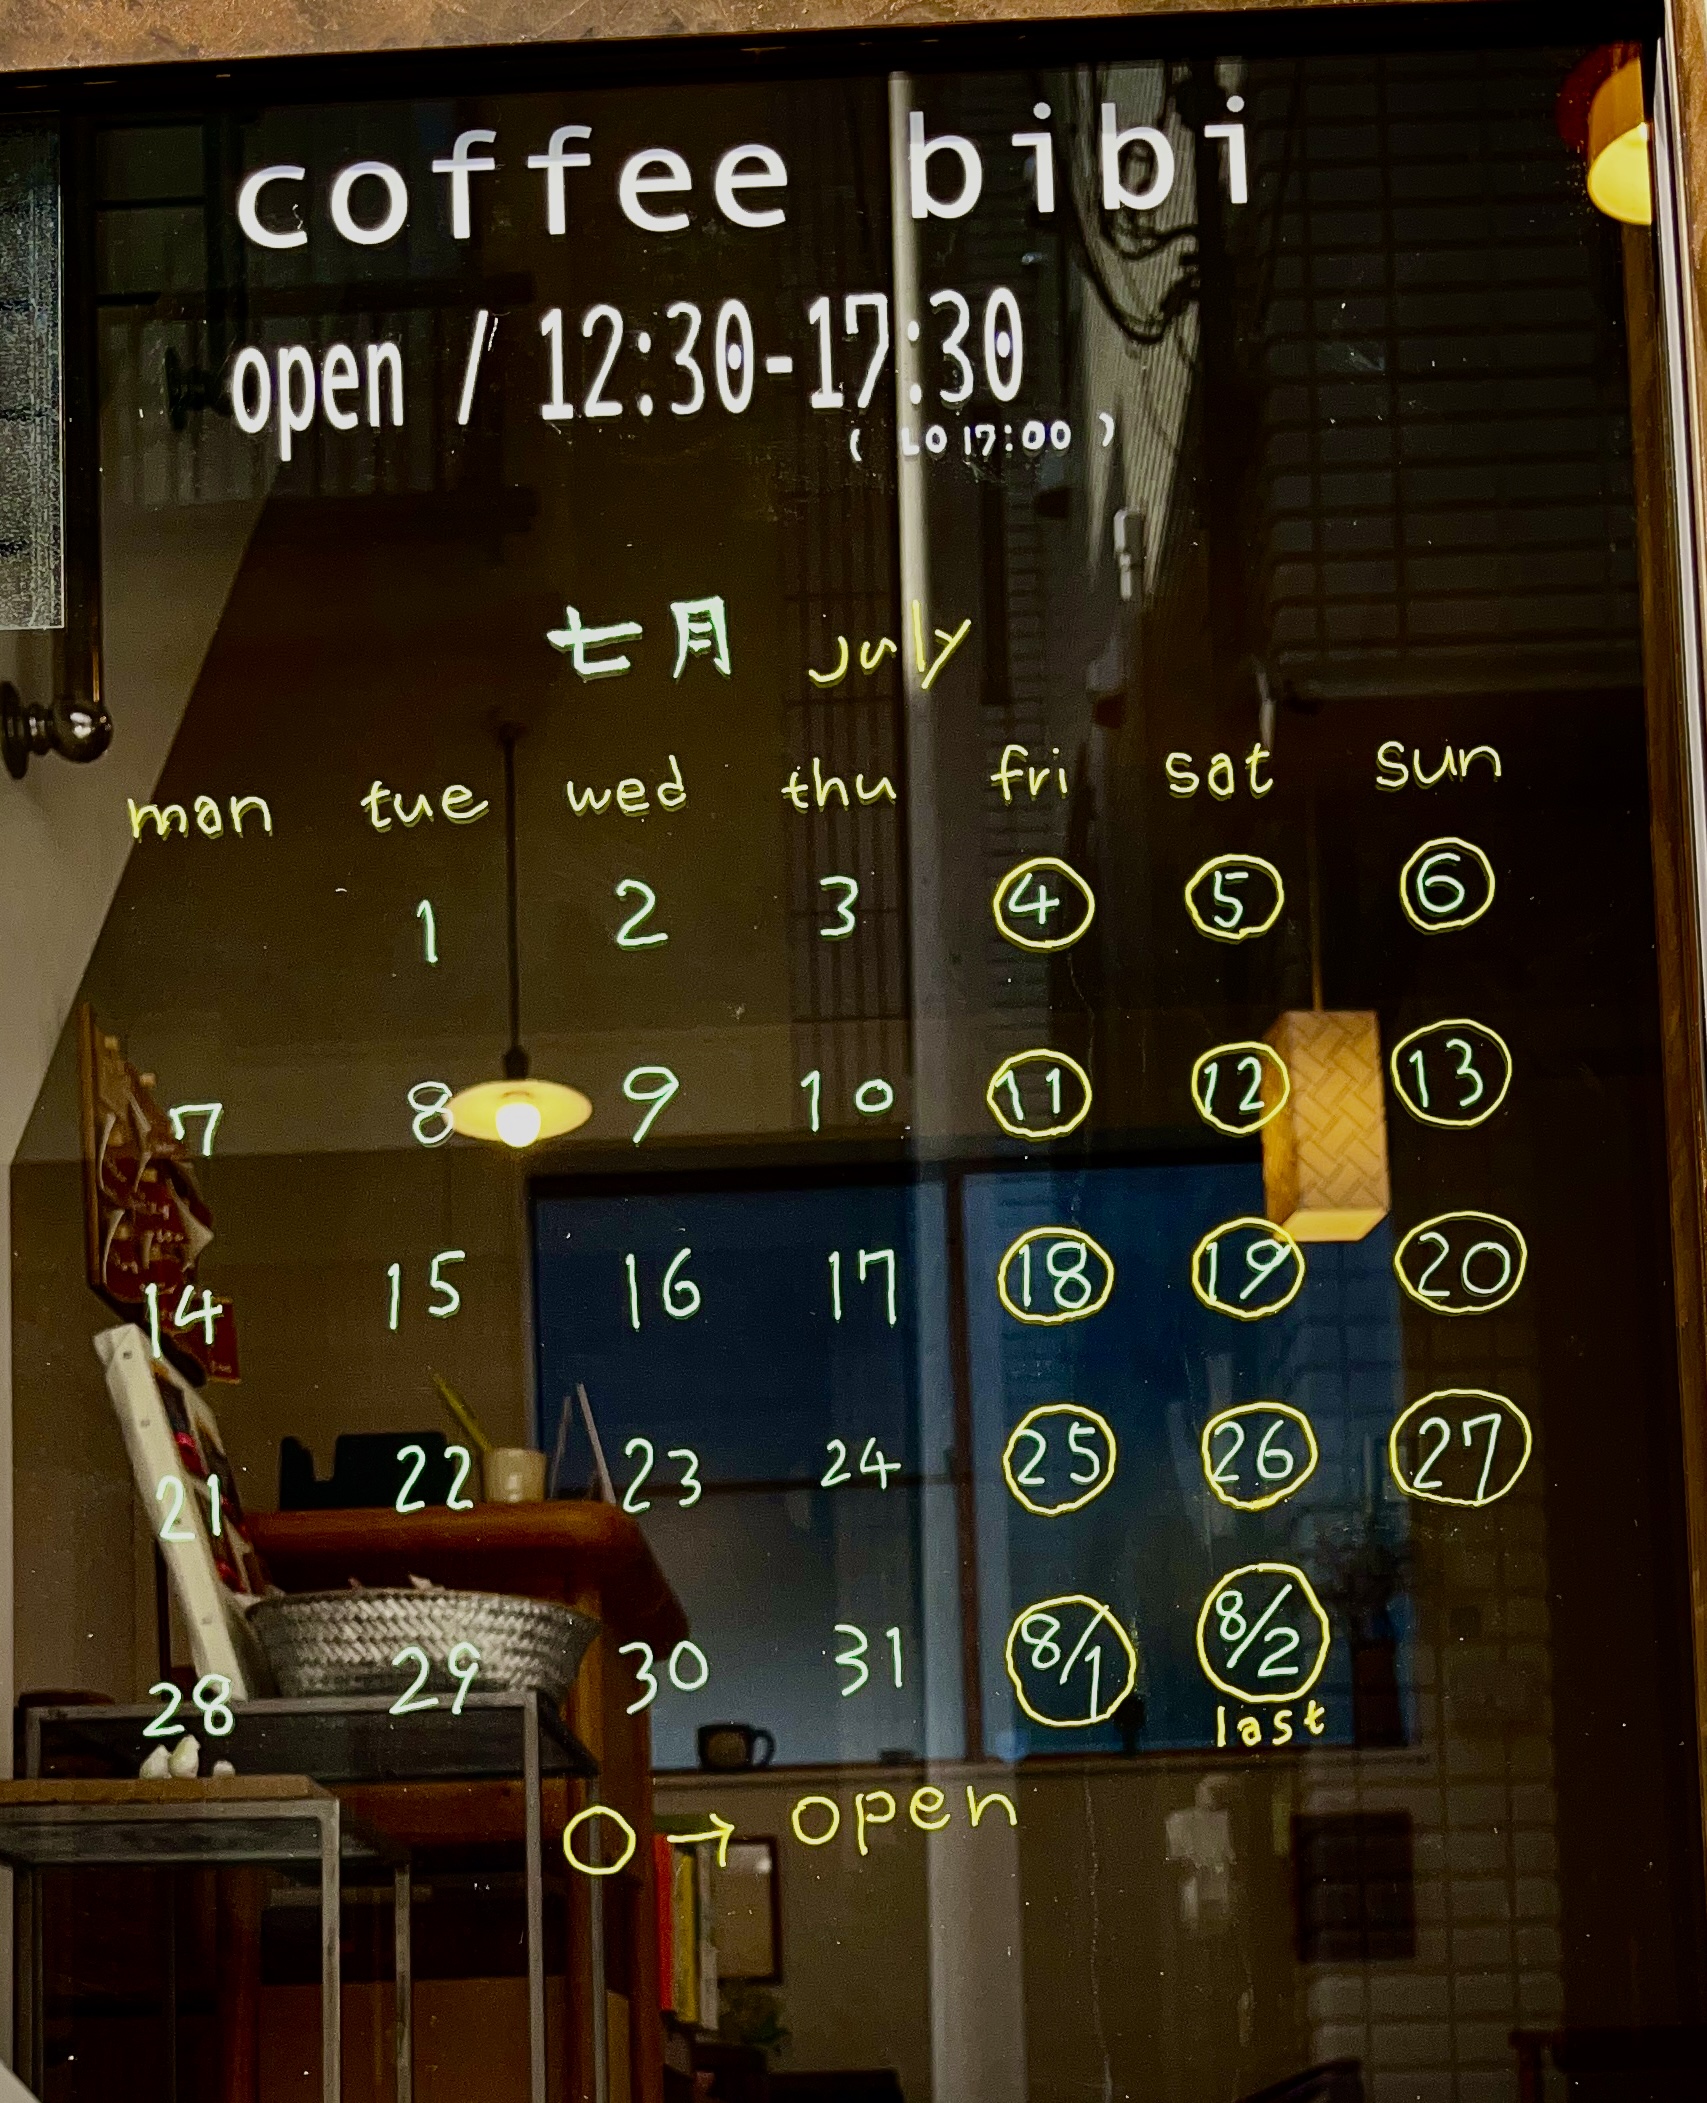 coffee bibi
open / 12:30-17:30
( LO 17:00 )
七月 july
mon tue wed thu fri sat sun
1 2 3 4 5 6
7 8 9 10 11 12 13
14 15 16 17 18 19 20
21 22 23 24 25 26 27
28 29 30 31 8/1 8/2
last
○→ open